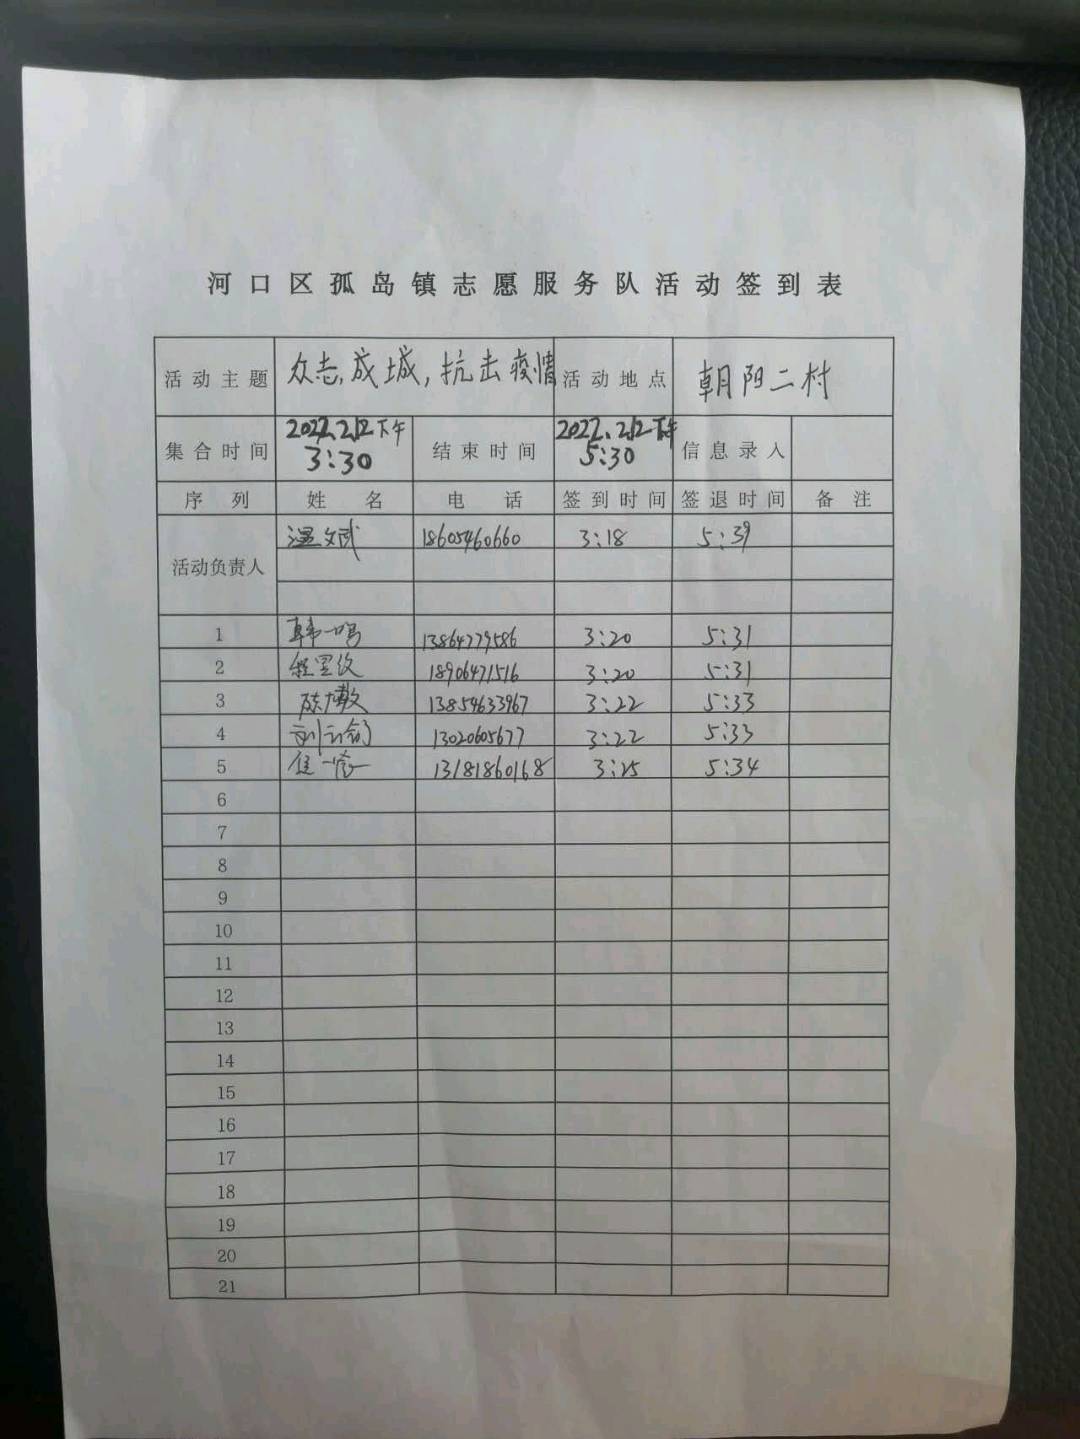 河口区孤岛镇志愿服务队活动签到表
活动主题 众志成城,抗击疫情 活动地点 朝阳二村
集合时间 2022.2.12下午 3:30 结束时间 2022.2.12下午 5:30 信息录人
序列 姓名 电话 签到时间 签退时间 备注
活动负责人 温文武 18605460660 3:18 5:39
1 韩一鸣 13864779586 3:20 5:31
2 18906471516 3:20 5:31
3 13854633967 3:22 5:33
4 13020605677 3:22 5:33
5 13181860168 3:25 5:34
6
7
8
9
10
11
12
13
14
15
16
17
18
19
20
21